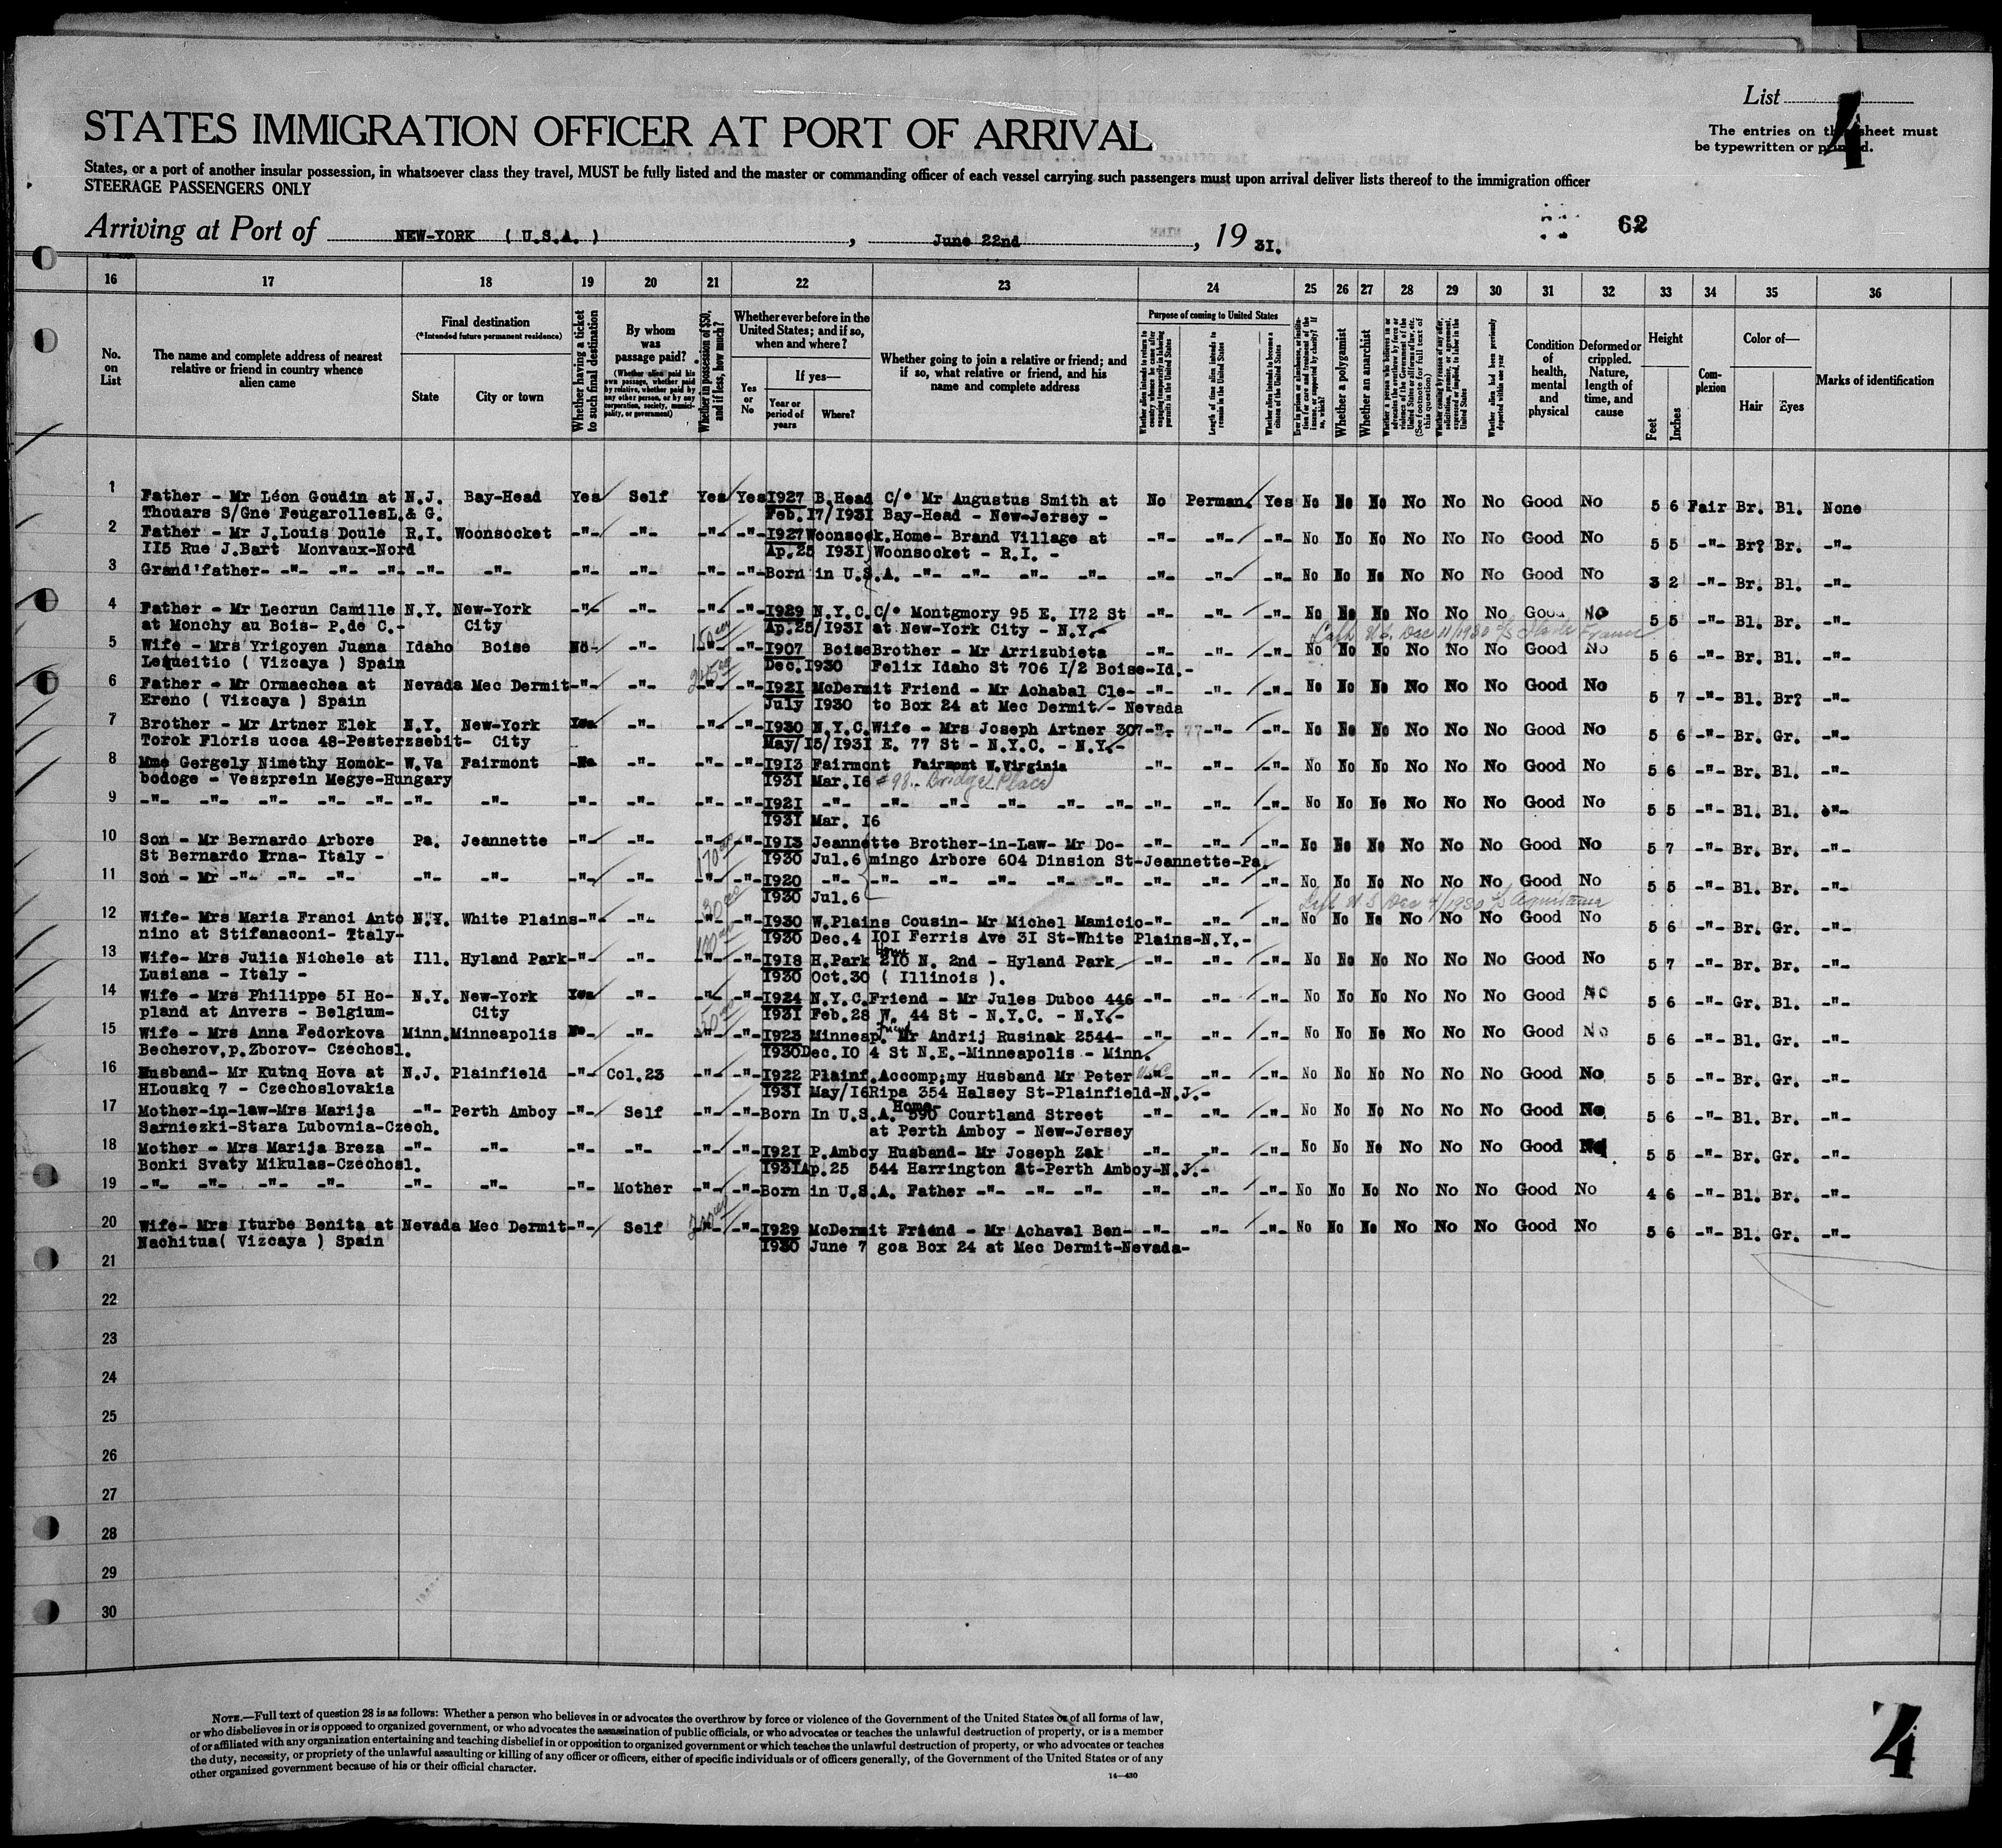 List
4
The entries on this sheet must
be typewritten or printed.
STATES IMMIGRATION OFFICER AT PORT OF ARRIVAL
States, or a port of another insular possession, in whatsoever class they travel, MUST be fully listed and the master or commanding officer of each vessel carrying such passengers must upon arrival deliver lists thereof to the immigration officer
STEERAGE PASSENGERS ONLY
Arriving at Port of NEW-YORK ( U.S.A. ) , June 22nd , 19 31.
62
16 17 18 19 20 21 22 23 24 25 26 27 28 29 30 31 32 33 34 35 36
No. on List
The name and complete address of nearest relative or friend in country whence alien came
Final destination
(*Intended future permanent residence)
State
City or town
Whether having a ticket to such final destination
By whom was passage paid?
(Whether alien paid his own passage, whether paid by relative, whether paid by any other person, or by any corporation, society, municipality, or government)
Whether in possession of $50, and if less, how much?
Whether ever before in the United States; and if so, when and where?
Yes or No
If yes—
Year or period of years
Where?
Whether going to join a relative or friend; and if so, what relative or friend, and his name and complete address
Purpose of coming to United States
Whether alien intends to return to country whence he came after engaging temporarily in laboring pursuits in the United States
Length of time alien intends to remain in the United States
Whether alien intends to become a citizen of the United States
Ever in prison or almshouse, or institution for care and treatment of the insane, or supported by charity? If so, which?
Whether a polygamist
Whether an anarchist
Whether a person who believes in or advocates the overthrow by force or violence of the Government of the United States or all forms of law, etc. (See footnote for full text of this question)
Whether coming by reason of any offer, solicitation, promise, or agreement, expressed or implied, to labor in the United States
Whether alien had been previously deported within one year
Condition of health, mental and physical
Deformed or crippled. Nature, length of time, and cause
Height
Feet
Inches
Complexion
Color of—
Hair
Eyes
Marks of identification
1 Father - Mr Léon Goudin at N.J. Bay-Head Yes Self Yes Yes 1927 B.Head C/o Mr Augustus Smith at No Perman. Yes No No No No No No Good No 5 6 Fair Br. Bl. None
Thouars S/Gne FeugarollesL.& G. Feb.17/1931 Bay-Head - New-Jersey -
2 Father - Mr J.Louis Doule R.I. Woonsocket -"- -"- -"- -"- 1927 Woonsock.Home- Brand Village at -"- -"- -"- No No No No No No Good No 5 5 -"- Br? Br. -"-
115 Rue J.Bart Monvaux-Nord Ap.25 1931 Woonsocket - R.I. -
3 Grand'father- -"- -"- -"- -"- -"- -"- -"- -"- -"- Born in U.S.A. -"- -"- -"- -"- -"- -"- -"- No No No No No No Good No 3 2 -"- Br. Bl. -"-
4 Father - Mr Lecrun Camille N.Y. New-York -"- -"- -"- -"- 1929 N.Y.C. C/o Montgmory 95 E. 172 St -"- -"- -"- No No No No No No Good No 5 5 -"- Bl. Br. -"-
at Monchy au Bois- P.de C.- City Ap.25/1931 at New-York City - N.Y.-
Left U.S. Dec 11/1930 S/S Ile de France
5 Wife - Mrs Yrigoyen Juana Idaho Boise No - -"- 150 -"- -"- 1907 Boise Brother - Mr Arrizubieta -"- -"- -"- No No No No No No Good No 5 6 -"- Br. Bl. -"-
Lequeitio ( Vizcaya ) Spain Dec.1930 Felix Idaho St 706 1/2 Boise-Id.-
6 Father - Mr Ormaechea at Nevada Mec Dermit -"- -"- -"- -"- 1921 McDermit Friend - Mr Achabal Cle- -"- -"- -"- No No No No No No Good No 5 7 -"- Bl. Br? -"-
Ereno ( Vizcaya ) Spain July 1930 to Box 24 at Mec Dermit - Nevada
7 Brother - Mr Artner Elek N.Y. New-York Yes -"- -"- -"- 1930 N.Y.C. Wife - Mrs Joseph Artner 307 -"- -"- -"- No No No No No No Good No 5 6 -"- Br. Gr. -"-
Torok Floris ucca 48-Pesterzsebit- City May/15/1931 E. 77 St - N.Y.C. - N.Y.-
8 Mme Gergely Nimethy Homok- W.Va Fairmont -No -"- -"- -"- 1913 Fairmont Fairmont W.Virginia -"- -"- -"- No No No No No No Good No 5 6 -"- Br. Bl. -"-
bodoge - Veszprein Megye-Hungary 1931 Mar.16 #98 - Bridge Place
9 -"- -"- -"- -"- -"- -"- -"- -"- -"- -"- -"- 1921 -"- -"- -"- -"- -"- -"- -"- -"- -"- No No No No No No Good No 5 5 -"- Bl. Bl. -"-
1931 Mar. 16
10 Son - Mr Bernardo Arbore Pa. Jeannette -"- -"- -"- -"- 1913 Jeannette Brother-in-Law- Mr Do- -"- -"- -"- No No No No No No Good No 5 7 -"- Br. Br. -"-
St Bernardo Erna- Italy - 170 1930 Jul.6 mingo Arbore 604 Dinsion St-Jeannette-Pa.
11 Son - Mr -"- -"- -"- -"- -"- -"- -"- -"- -"- 1920 -"- -"- -"- -"- -"- -"- -"- -"- -"- No No No No No No Good No 5 5 -"- Bl. Br. -"-
1930 Jul.6
Left U S Dec 4/1930 S/S Aquitania
12 Wife- Mrs Maria Franci Anto N.Y. White Plains -"- -"- -"- -"- 1930 W.Plains Cousin- Mr Michel Mamicio -"- -"- -"- No No No No No No Good No 5 6 -"- Br. Gr. -"-
nino at Stifanaconi- Italy- 1930 Dec.4 101 Ferris Ave 31 St-White Plains-N.Y.-
13 Wife- Mrs Julia Nichele at Ill. Hyland Park -"- -"- -"- -"- 1918 H.Park Home 210 N. 2nd - Hyland Park -"- -"- -"- No No No No No No Good No 5 7 -"- Br. Br. -"-
Lusiana - Italy - 1930 Oct.30 ( Illinois ).
14 Wife - Mrs Philippe 51 Ho- N.Y. New-York Yes -"- -"- -"- 1924 N.Y.C. Friend - Mr Jules Duboc 446 -"- -"- -"- No No No No No No Good No 5 6 -"- Gr. Bl. -"-
pland at Anvers - Belgium- City 1931 Feb.28 W. 44 St - N.Y.C. - N.Y.-
15 Wife - Mrs Anna Fedorkova Minn. Minneapolis No- -"- -"- -"- 1923 Minneap. Friend Mr Andrij Rusinak 2544- -"- -"- -"- No No No No No No Good No 5 6 -"- Bl. Gr. -"-
Becherov.p.Zborov- Czechosl. 1930 Dec.10 4 St N.E.-Minneapolis - Minn.
16 Husband- Mr Kutnq Hova at N.J. Plainfield -"- Col.23 -"- -"- 1922 Plainf. Accomp;my Husband Mr Peter -"- -"- -"- No No No No No No Good No 5 5 -"- Br. Gr. -"-
HLouskq 7 - Czechoslovakia 1931 May/16 Ripa 354 Halsey St-Plainfield-N.J.-
17 Mother-in-law-Mrs Marija -"- Perth Amboy -"- Self -"- -"- Born In U.S.A. Home- 590 Courtland Street -"- -"- -"- No No No No No No Good No 5 6 -"- Bl. Br. -"-
Sarniezki-Stara Lubovnia-Czech. at Perth Amboy - New-Jersey
18 Mother - Mrs Marija Breza -"- -"- -"- -"- -"- -"- 1921 P.Amboy Husband- Mr Joseph Zak -"- -"- -"- No No No No No No Good No 5 5 -"- Br. Gr. -"-
Bonki Svaty Mikulas-Czechosl. 1931 Ap.25 544 Harrington St-Perth Amboy-N.J.-
19 -"- -"- -"- -"- -"- -"- -"- Mother -"- -"- Born in U.S.A. Father -"- -"- -"- -"- -"- -"- No No No No No No Good No 4 6 -"- Bl. Br. -"-
20 Wife- Mrs Iturbe Benita at Nevada Mec Dermit -"- Self -"- -"- 1929 McDermit Friend - Mr Achaval Ben- -"- -"- -"- No No No No No No Good No 5 6 -"- Bl. Gr. -"-
Nachitua( Vizcaya ) Spain 1930 June 7 goa Box 24 at Mec Dermit-Nevada-
21
22
23
24
25
26
27
28
29
30
NOTE.—Full text of question 28 is as follows: Whether a person who believes in or advocates the overthrow by force or violence of the Government of the United States or of all forms of law,
or who disbelieves in or is opposed to organized government, or who advocates the assassination of public officials, or who advocates or teaches the unlawful destruction of property, or is a member
of or affiliated with any organization entertaining and teaching disbelief in or opposition to organized government or which teaches the unlawful destruction of property, or who advocates or teaches
the duty, necessity, or propriety of the unlawful assaulting or killing of any officer or officers, either of specific individuals or of officers generally, of the Government of the United States or of any
other organized government because of his or their official character.
14—430
4